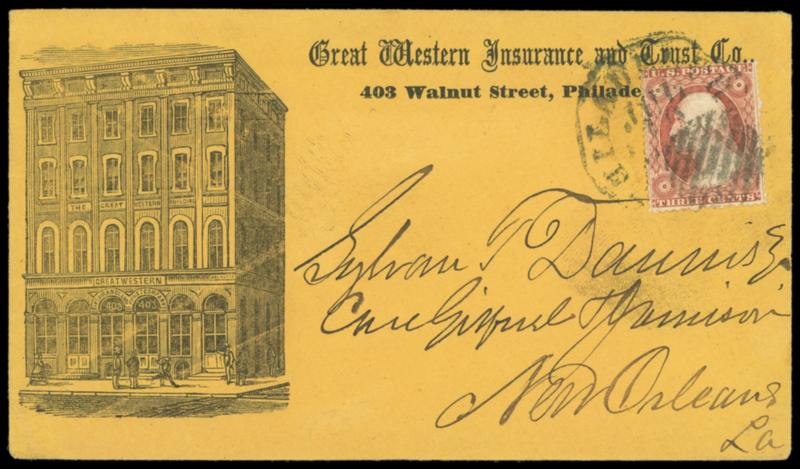 Great Western Insurance and Trust Co.,
403 Walnut Street, Philade
U.S. POSTAGE
THREE CENTS
THE GREAT WESTERN BUILDING
GREAT WESTERN
403 403
Sylvan T Dannis
Care Giquel & Jamison
New Orleans
La